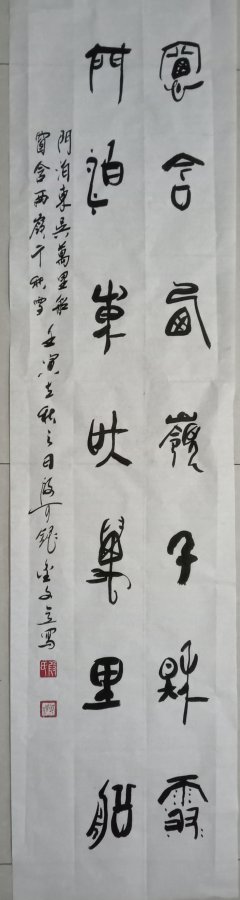 窗含西嶺千秋雪
門泊東吳萬里船
門泊東吳萬里船
窗含西嶺千秋雪 壬寅立秋之日 金文 寫